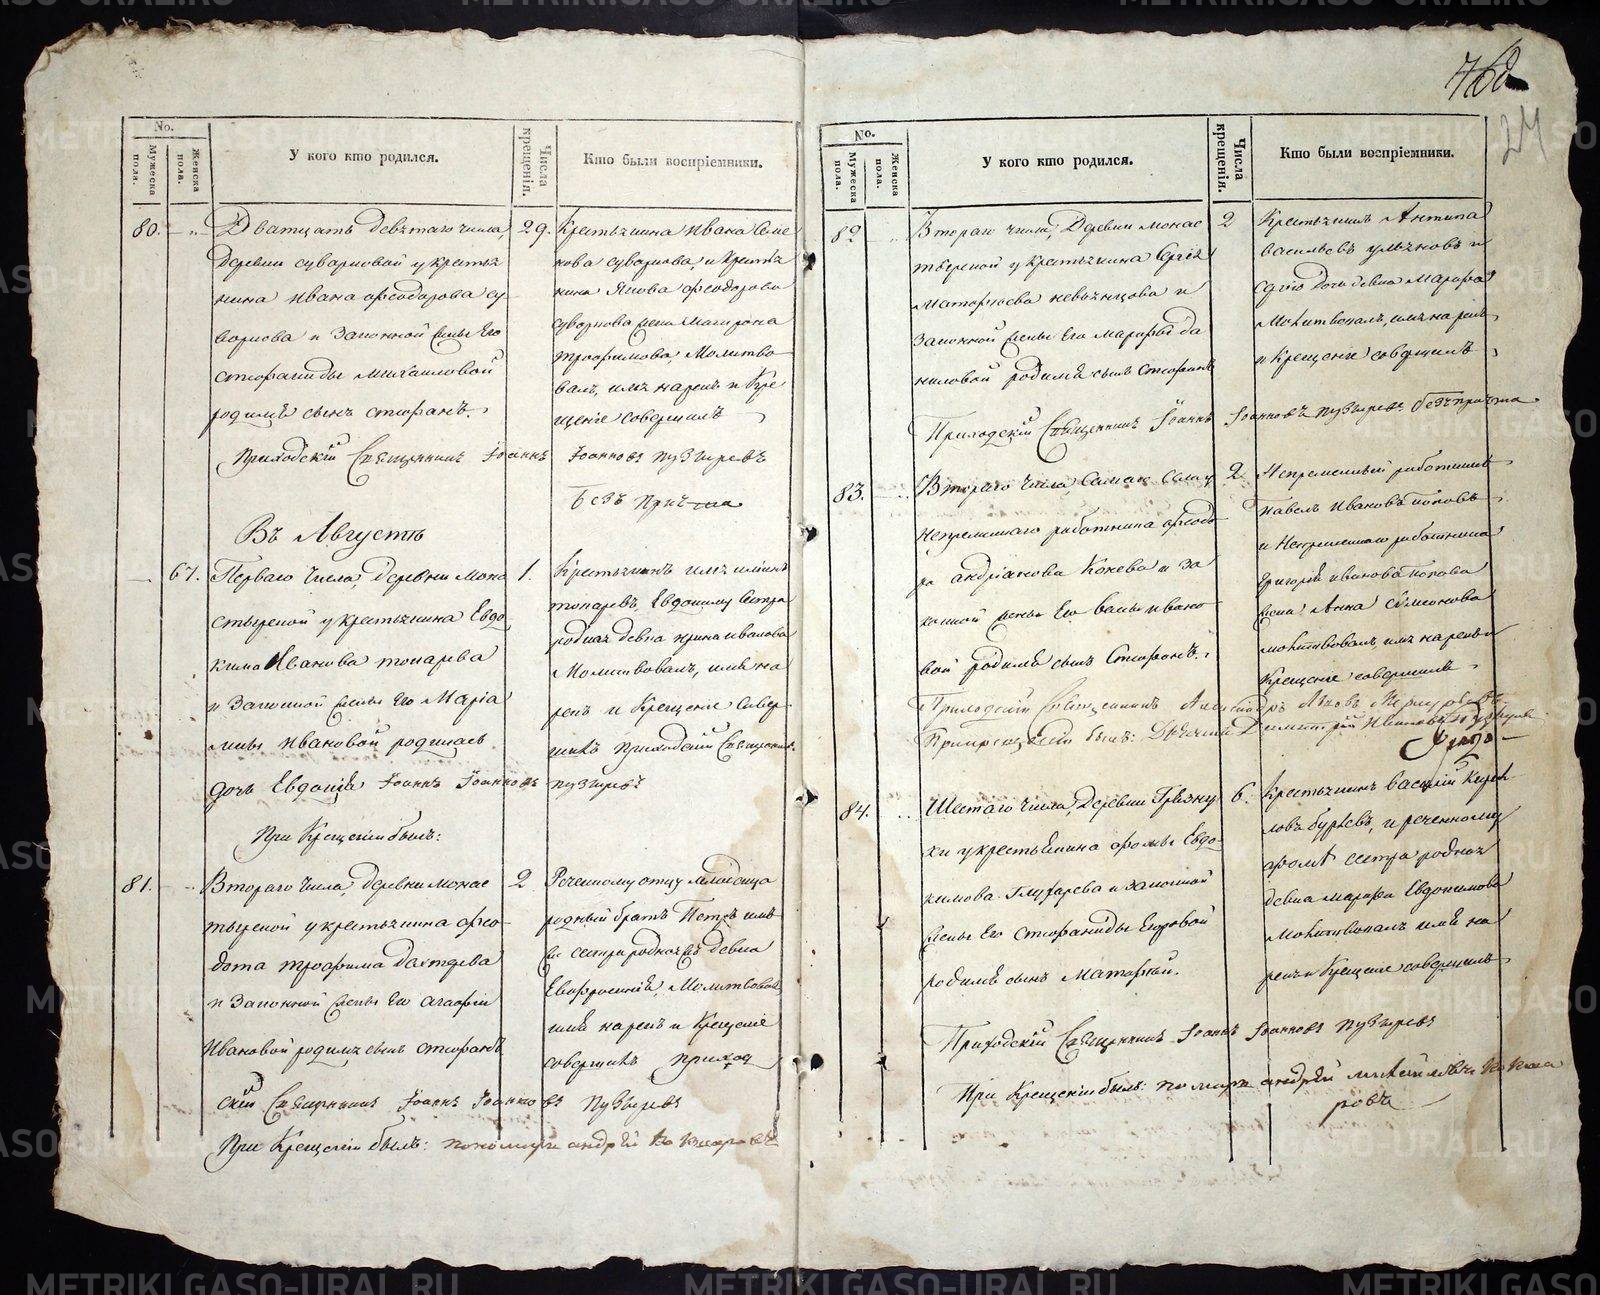 768
24
No.
Мужеска пола.
Женска пола.
У кого кто родился.
Числа крещенія.
Кто были воспріемники.
80.
Дватцать девятаго числа,
деревни суворковой у кресть
янина Ивана Феодорова су
воркова и законной жены Его
стефаниды Михаиловой
родился сынъ стефанъ.
29.
Крестьянина Ивана Семе
нова суворкова, и крестья
нина Якова Феодорова
суворкова жена
трофимова, Молитво
валъ, имя нарекъ и Кре
щеніе совершилъ
Приходскій Священникъ Іоаннъ Іоанновъ Пузыревъ
Безъ причта
Въ Августѣ
67.
Перваго числа, Деревни Мона
стырской у крестьянина Евдо
кима Иванова токарева
и Законной жены Его Марія
мны Ивановой родилась
дочь Евдокія
1.
Крестьянинъ
токаревъ, Евдокиму сестра
родная девка ирина иванова
Молитвовалъ, имя на
рекъ и Крещеніе Совер
шилъ Приходскій Священникъ
Іоаннъ Іоанновъ Пузыревъ
При Крещеніи былъ:
81.
Втораго числа, деревни Монас
тырской у крестьянина Фео
дота трофима
и Законной жены Его агафіи
Ивановой родился сынъ стефанъ
2
Реченному отцу младенца
родный братъ Петръ имъ
же сестра родная девка
Евфросинія, Молитвовалъ
имя нарекъ и Крещеніе
совершилъ Приход
скій Священникъ Іоаннъ Іоанновъ Пузыревъ
При Крещеніи былъ: пономарь андрей
No.
Мужеска пола.
Женска пола.
У кого кто родился.
Числа крещенія.
Кто были воспріемники.
82
Втораго числа, Деревни монас
тырской у крестьянина Сергія
Матфиева и
законной жены Его марфы да
ниловой родился сынъ стефанъ
2
Крестьянинъ Антипа
васильевъ и
его дочь девка Марфа
Молитвовалъ, имя нарекъ
и Крещеніе совершилъ
Приходскій Священникъ Іоаннъ Іоанновъ Пузыревъ безъ причта
83.
Втораго числа,
непременнаго работника Феодо
ра андріанова Кокева и за
конной жены Его ивано
вой родился сынъ Стефанъ.
2
Непременный работникъ
Павелъ Ивановъ поповъ
и Непременнаго работника
Григорія иванова попова
жена Анна сѵмеонова
молитвовалъ, имя нарекъ и
Крещеніе совершилъ
Приходскій Священникъ Александръ
были: Дьячекъ Димитрій Ивановъ
84.
Шестаго числа, Деревни Грязну
хи у крестьянина фомы Евдо
кимова Глухарева и законной
жены Его стефаниды Егоровой
родился сынъ Матфей.
6.
Крестьянинъ василій
ловъ и реченному
фомѣ сестра родная
девка марфа Евдокимова
Молитвовалъ имя на
рекъ и Крещеніе совершилъ
Приходскій Священникъ Іоаннъ Іоанновъ Пузыревъ
При Крещеніи былъ: пономарь андрей
ровъ
METRIKI.GASO-URAL.RU